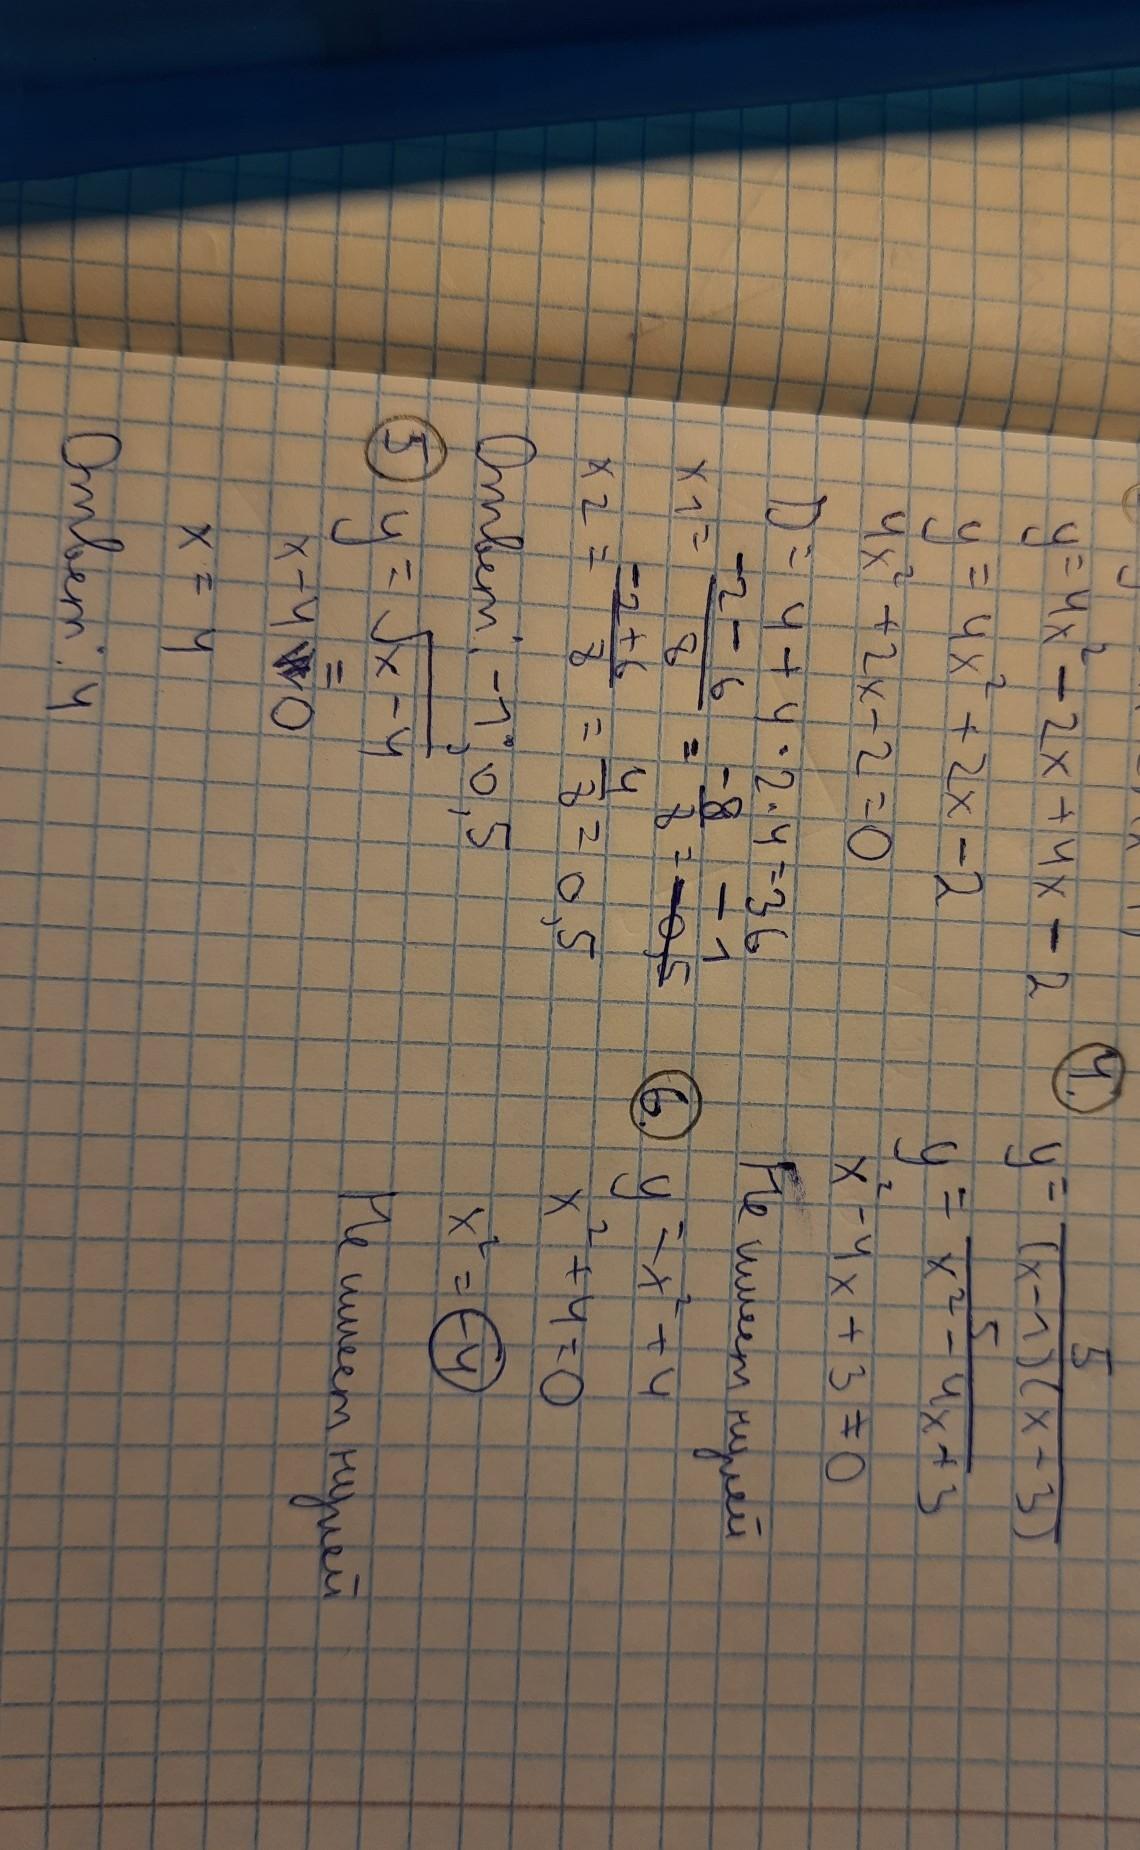 y=4x² - 2x + 4x - 2
y = 4x² + 2x - 2
4x² + 2x - 2 = 0
D = 4 + 4 · 2 · 4 = 36
x1 = -2 - 6 / 8 = -8 / 8 = -1
x2 = -2 + 6 / 8 = 4 / 8 = 0,5
Ответ: -1; 0,5
5 y = √x - 4
x - 4 = 0
x = 4
Ответ: 4
4. y = 5 / (x-1)(x-3)
y = 5 / x² - 4x + 3
x² - 4x + 3 ≠ 0
Не имеет нулей
6. y = x² + 4
x² + 4 = 0
x² = -4
Не имеет нулей